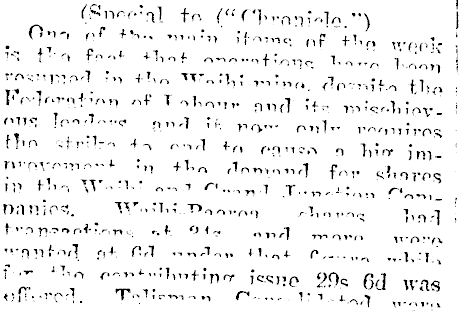 (Special to ("Chronicle.")
One of the main items of the week
is the fact that operations have been
resumed in the Waihi mine, despite the
Federation of Labour and its mischiev-
ous leaders, and it now only requires
the strike to end to cause a big im-
provement in the demand for shares
in the Waihi and Grand Junction Com-
panies. Waihi-Paeroa shares had
transactions at 21s, and more were
wanted at 6d under that figure while
for the contributing issue 29s 6d was
offered. Talisman Consolidated were